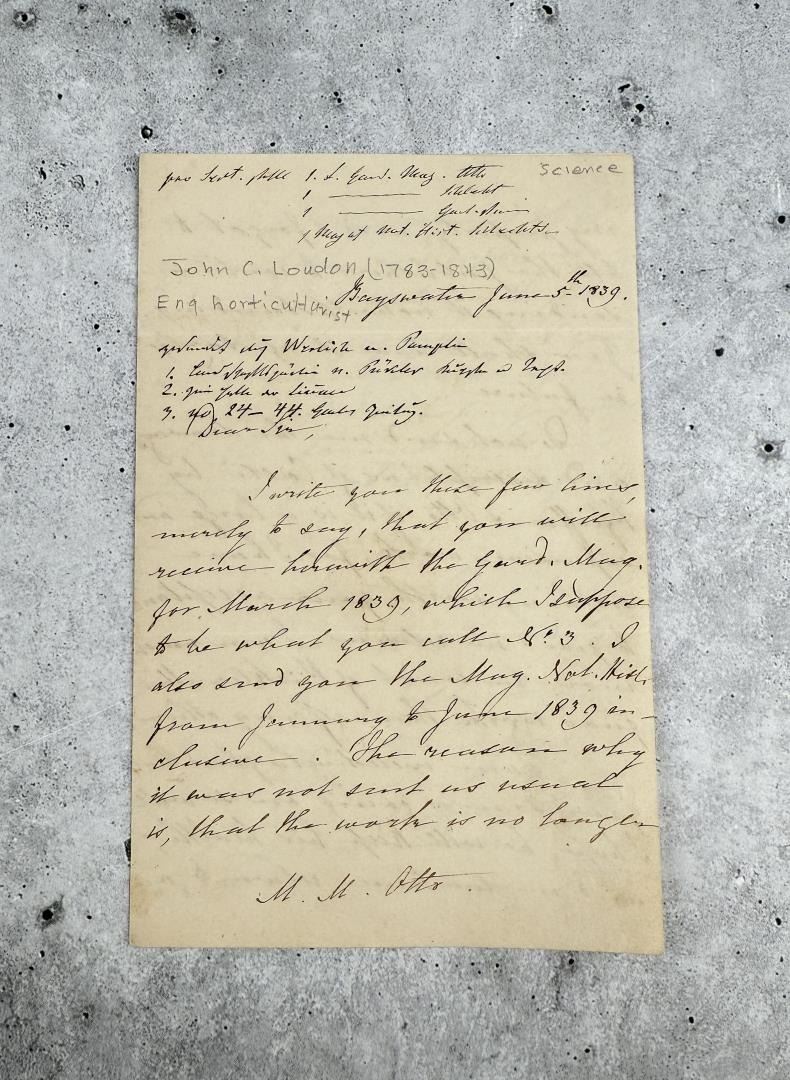 1. L. Gard. Mag. Otto
Science
1 ——— Schlecht
1 ———
1 Mag of Nat. Hist. Schlecht
John C. Loudon, (1783-1843)
Eng horticulturist
Bayswater June 5th 1839.
Pamplin
1. Pückler
2.
3. No. 24-44.
Dear Sir,
I write you these few lines,
merely to say, that you will
receive herewith the Gard. Mag.
for March 1839, which I suppose
to be what you call No. 3. I
also send you the Mag. Nat. Hist.
from January to June 1839 in-
clusive. The reason why
it was not sent as usual
is, that the work is no longer
M. M. Otto.